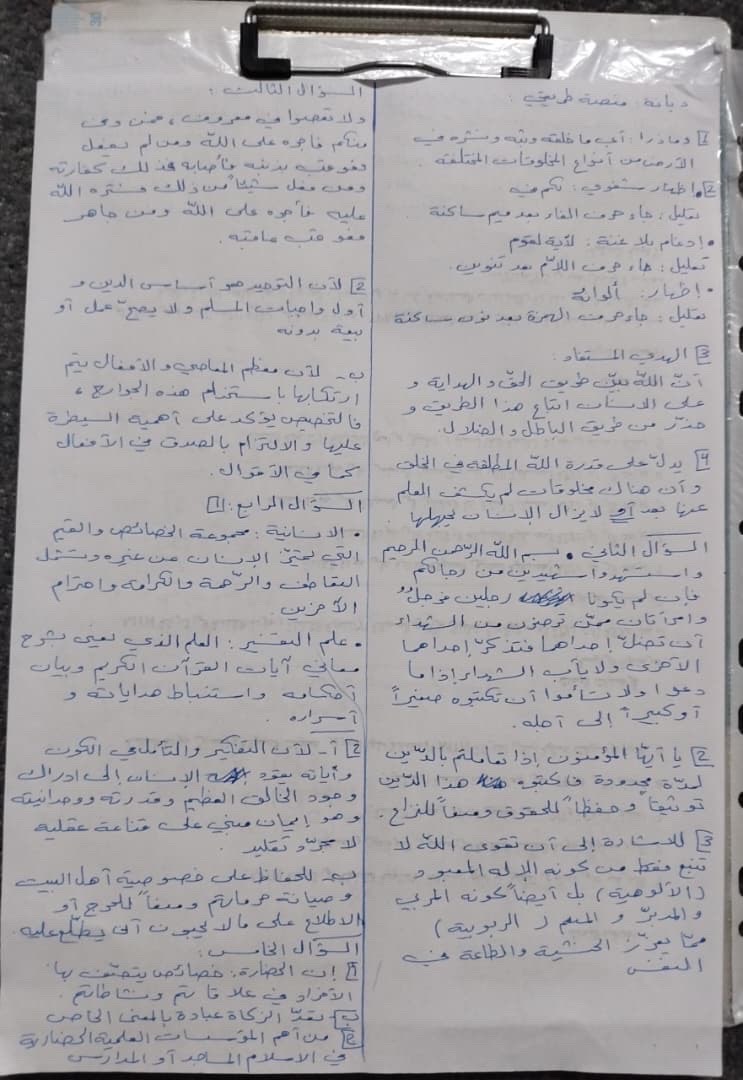 ديانة: منصة طريقي
1 وما ذرأ: أي ما خلقه وبثه ونشره في
الأرض من أنواع المخلوقات المختلفة.
2 • إظهار شفوي: لكم في
تعليل: جاء حرف الفاء بعد ميم ساكنة
• إدغام بلا غنة: لآية لقوم
تعليل: جاء حرف اللام بعد تنوين.
• إظهار: ألوانه
تعليل: جاء حرف الهمزة بعد نون ساكنة
3 الهدي المستفاد:
أنّ الله يبيّن طريق الحقّ والهداية و
على الإنسان اتباع هذا الطريق و
حذّر من طريق الباطل والضلال.
4 يدلّ على قدرة الله المطلقة في الخلق
وأن هناك مخلوقات لم يكشف العلم
عنها بعد أو لا يزال الإنسان يجهلها.
السؤال الثاني • بسم الله الرّحمن الرحيم
واستشهدوا شهيدين من رجالكم
فإن لم يكونا رجلين فرجلٌ
وامرأتان ممّن ترضون من الشهداء
أن تضلّ إحداهما فتذكّر إحداهما
الأخرى ولا يأب الشهداء إذا ما
دعوا ولا تسأموا أن تكتبوه صغيراً
أو كبيراً إلى أجله.
2 يا أيّها المؤمنون إذا تعاملتم بالدّين
لمدّة محدودة فاكتبوا هذا الدّين
توثيقاً وحفظاً للحقوق ومنعاً للنزاع.
3 للإشارة إلى أن تقوى الله لا
تنبع فقط من كونه الإله المعبود
(الألوهية) بل أيضاً كونه المربي
والمدبّر والمنعم (الربوبية)
ممّا يعزّز الخشية والطاعة في
النفس
السؤال الثالث:
ولا تعصوا في معروف، فمن وفى
منكم فأجره على الله ومن لم يفعل
فعوقب بذنبه فأصابه فذلك كفارته
ومن فعل شيئاً من ذلك فستره الله
عليه فأجره على الله ومن جاهر
فعوقب عاقبه.
2 لأن التوحيد هو أساس الدين و
أول واجبات المسلم ولا يصحّ عمل أو
نية بدونه
ب- لأن معظم المعاصي والأفعال يتم
ارتكابها باستخدام هذه الجوارح،
فالتخصيص يؤكد على أهمية السيطرة
عليها والالتزام بالصدق في الأفعال
كما في الأقوال.
السؤال الرابع: 1
• الإنسانية: مجموعة الخصائص والقيم
التي تميّز الإنسان عن غيره وتشمل
التعاطف والرّحمة والكرامة واحترام
الآخرين.
• علم التفسير: العلم الذي يعنى بشرح
معاني آيات القرآن الكريم وبيان
أحكامه واستنباط هداياته و
أسراره.
2 أ- لأن التفكير والتأمل في الكون
وآياته يقود الإنسان إلى إدراك
وجود الخالق العظيم وقدرته ووحدانيته
وهو إيمان مبني على قناعة عقلية
لا مجرّد تقليد.
ب- للحفاظ على خصوصية أهل البيت
وصيانة حرماتهم ومنعاً للحرج أو
الاطلاع على ما لا يحبون أن يطّلع عليه.
السؤال الخامس:
1 إن الحضارة: خصائص يتصف بها
الأفراد في علاقاتهم ونشاطاتهم.
ب- تعدّ الزكاة عبادة بالمعنى الخاص
2 من أهم المؤسسات العلمية الحضارية
في الاسلام المساجد أو المدارس